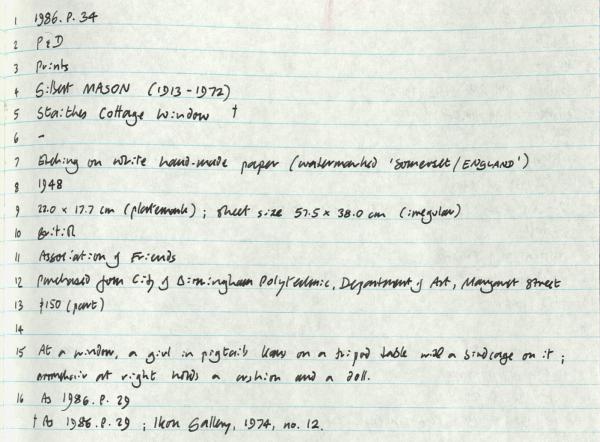 1 1986.P.34
2 P&D
3 Prints
4 Gilbert MASON (1913-1972)
5 Staithes Cottage Window †
6 -
7 Etching on white hand-made paper (watermarked 'SOMERSET/ENGLAND')
8 1948
9 22.0 x 17.7 cm (platemark); sheet size 57.5 x 38.0 cm (irregular)
10 British
11 Association of Friends
12 Purchased from City of Birmingham Polytechnic, Department of Art, Margaret Street
13 £150 (part)
14
15 At a window, a girl in pigtails leans on a tripod table with a birdcage on it;
armchair at right holds a cushion and a doll.
16 As 1986.P.29
† As 1986.P.29; Ikon Gallery, 1974, no. 12.